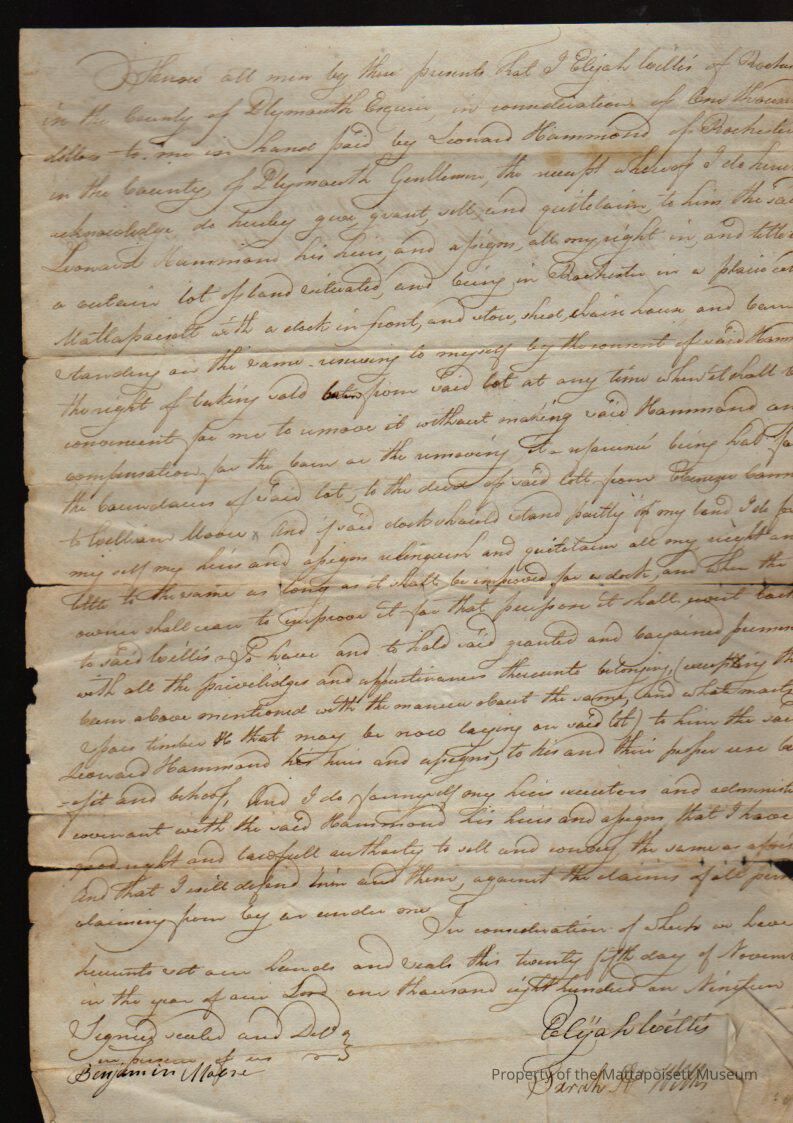 Know all men by these presents that I Elijah Willis of Roches
in the County of Plymouth Esquire, in consideration of One thousan
dollors to me in hand paid by Leonard Hammond of Rochester
in the County of Plymouth Gentleman, the receipt whereof I do here
acknowledge do hereby give grant, sell, and quitclaim, to him the sai
Leonard Hammond his heirs, and assigns, all my right in, and title
a certain lot of land situated, and being in Rochester in a place cal
Mattapoisett with a dock in front, and store, shed, chaise house and barn
standing on the same reserving to myself by the consent of said Hamm
the right of taking said barn from said lot at any time when it shall b
convenient for me to remove it without making said Hammond an
compensation for the barn or the removing it - reference being had fo
the boundaries of said lot, to the deed of said lott from Ebenezer Cann
to William Moore And if said dock should stand partly on my land I do fo
my self my heirs and assigns relinquish and quitclaim all my right an
title to the same as long as it shall be improved for a dock, and when the
owner shall cease to improve it for that purpose it shall revert back
to said Willis To have and to hold said granted and bargained premis
with all the priviledges and appurtenances thereunto belonging, (excepting th
barn above mentioned with the manure about the same, and what masts
spars timber &c that may be now laying on said lot) to him the said
Leonard Hammond his heirs and assigns, to his and their proper use be
-efit and behoof, And I do for myself my heirs executors and administ
covenant with the said Hammond his heirs and assigns that I have
good right and lawfull authority to sell and convey the same as afores
And that I will defend him and them, against the claims of all pers
claiming from by or under me
In consideration of which we have
hereunto set our hands and seals this twenty fifth day of Novem
in the year of our Lord one thousand eight hundred an Nineteen
Signed sealed and Delv'd
in presence of us
Elijah Willis
Benjamin Moore
Sarah H Willis
Property of the Mattapoisett Museum